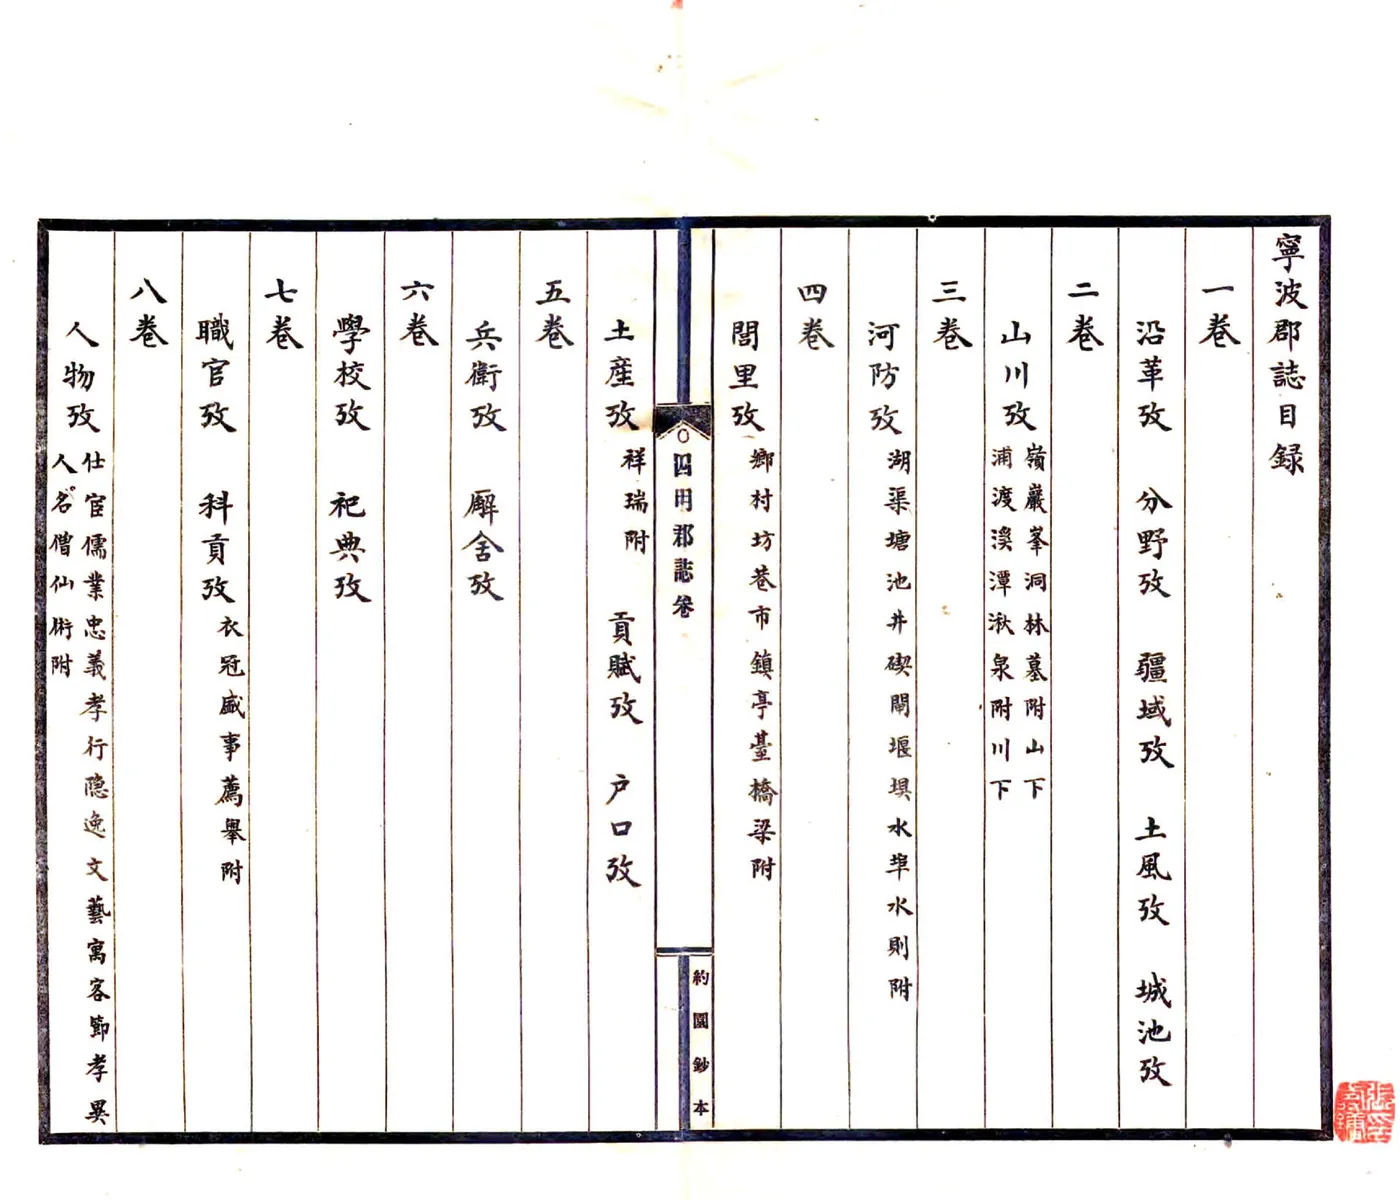 寧波郡誌目録
一卷
沿革攷　分野攷　疆域攷　土風攷　城池攷
二卷
山川攷
嶺巖峯洞林墓附山下
浦渡溪潭湫泉附川下
三卷
河防攷 湖渠塘池井碶閘堰埧水埠水則附
四卷
閭里攷 鄉村坊巷市鎮亭臺橋梁附
四明郡誌卷
約園鈔本
土產攷 祥瑞附　貢賦攷　户口攷
五卷
兵衛攷　廨舍攷
六卷
學校攷　祀典攷
七卷
職官攷　科貢攷 衣冠盛事薦舉附
八卷
人物攷
仕宦儒業忠義孝行隐逸文藝寓客節孝異
人名僧仙術附